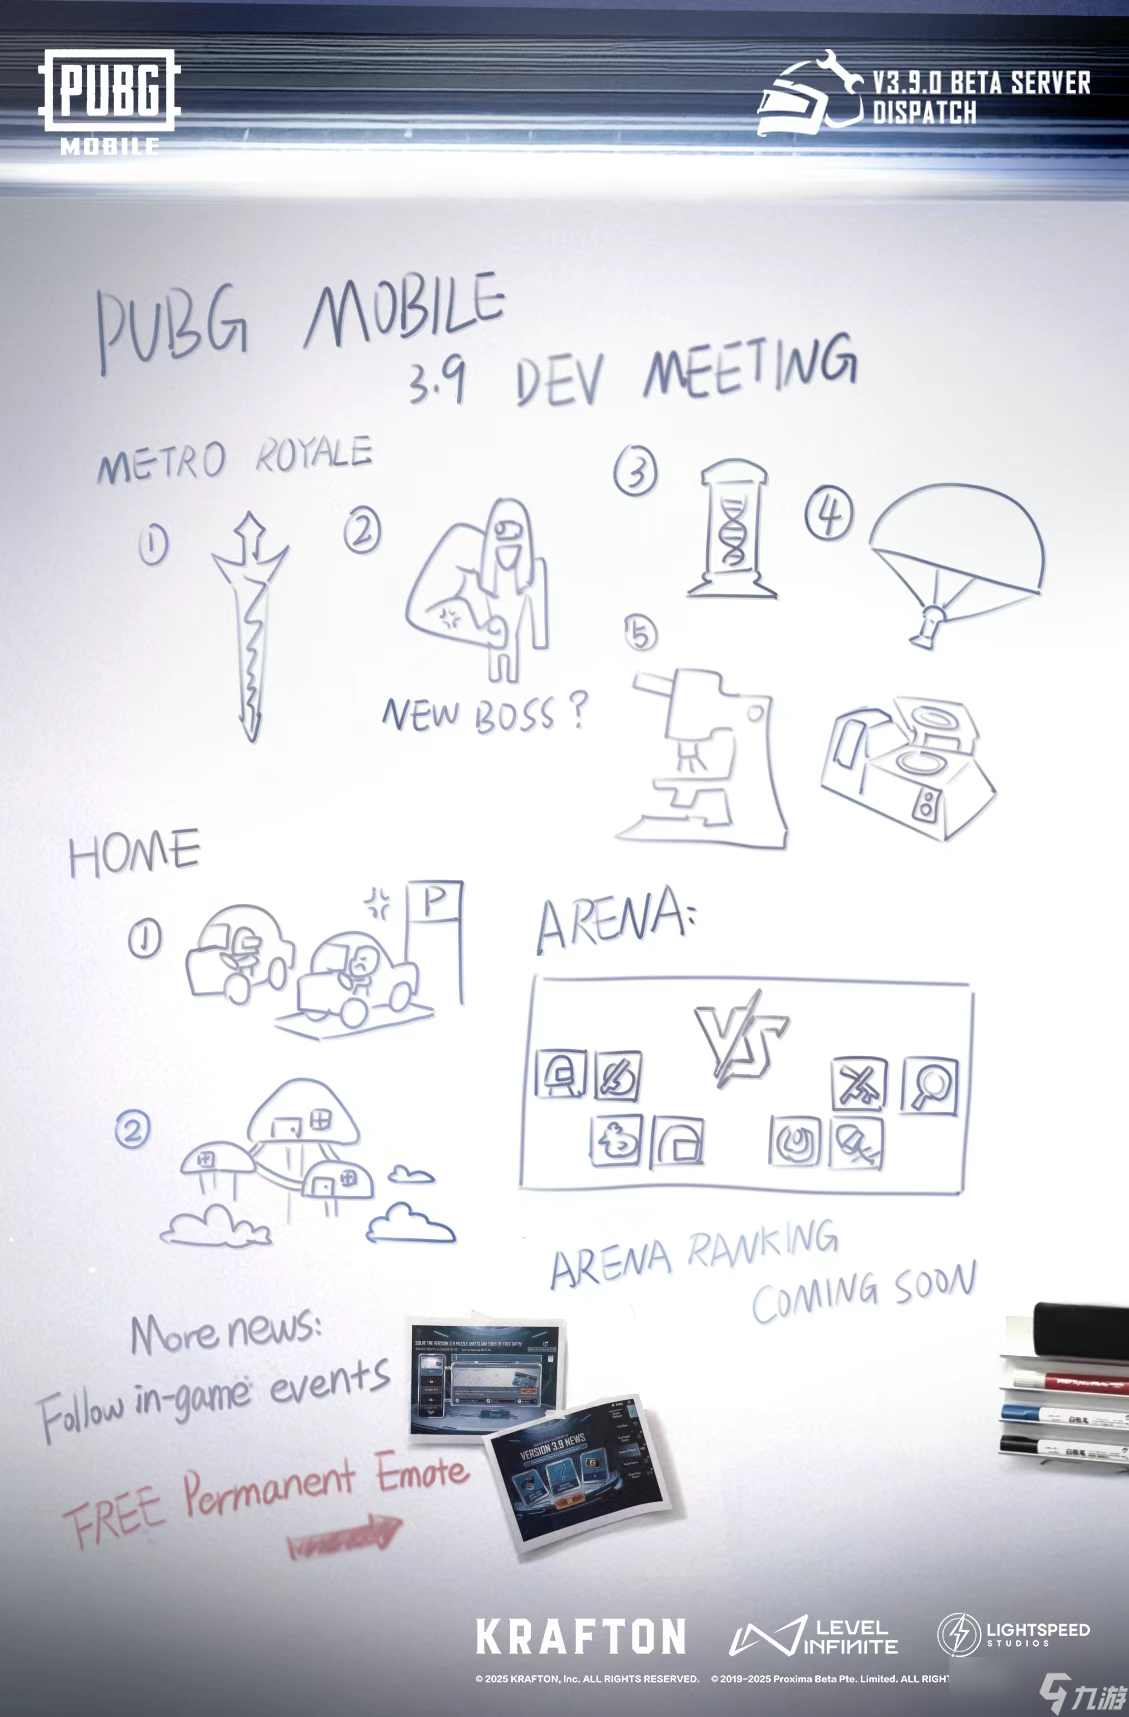 PUBG
MOBILE
V3.9.0 BETA SERVER
DISPATCH
PUBG MOBILE
3.9 DEV MEETING
METRO ROYALE
①
②
NEW BOSS?
③
④
⑤
HOME
①
P
②
ARENA:
VS
ARENA RANKING
COMING SOON
More news:
Follow in-game events
FREE Permanent Emote
SOLVE THE VERSION 3.9 PUZZLE AND CLAIM TONS OF FREE GIFTS!
VERSION 3.9 NEWS
白板笔
白板笔
KRAFTON
LEVEL
INFINITE
LIGHTSPEED
STUDIOS
© 2025 KRAFTON, Inc. ALL RIGHTS RESERVED. © 2019-2025 Proxima Beta Pte. Limited. ALL RIGHT
九游